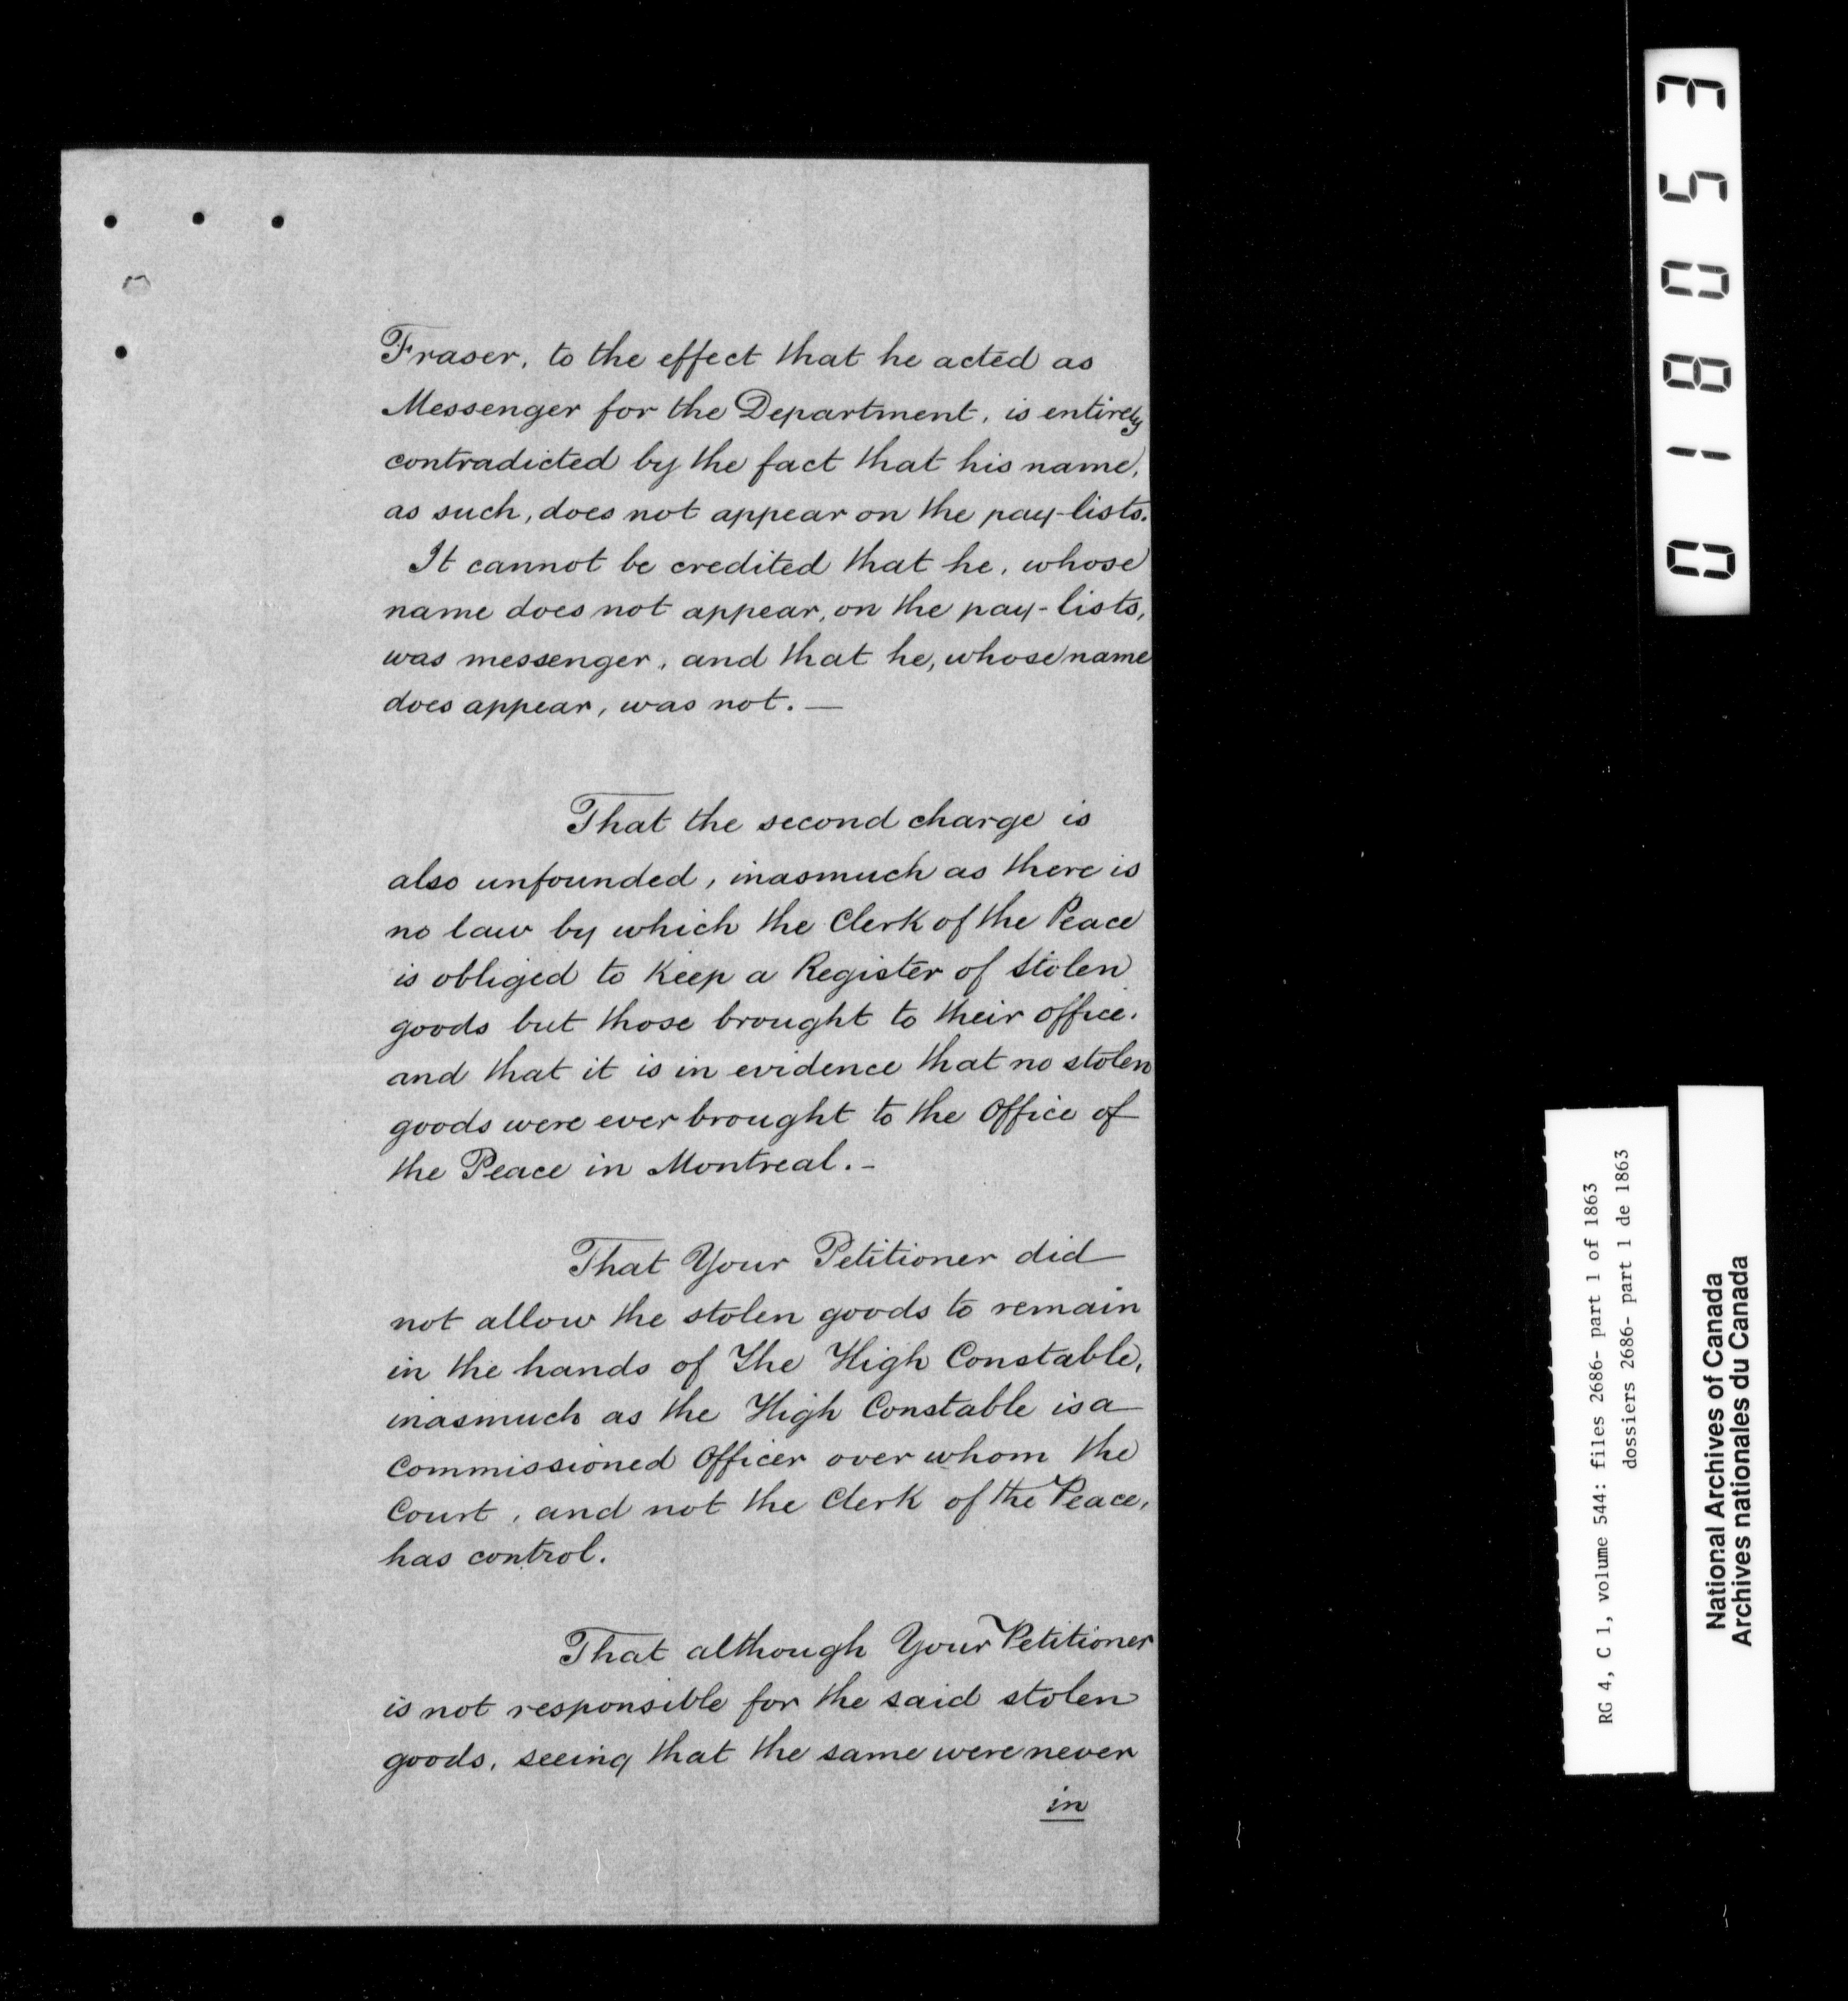 Fraser, to the effect that he acted as
Messenger for the Department, is entirely
contradicted by the fact that his name,
as such, does not appear on the pay-lists.
It cannot be credited that he, whose
name does not appear, on the pay-lists,
was messenger, and that he, whose name
does appear, was not. —
That the second charge is
also unfounded, inasmuch as there is
no law by which the Clerk of the Peace
is obliged to keep a Register of stolen
goods but those brought to their office.
and that it is in evidence that no stolen
goods were ever brought to the Office of
the Peace in Montreal. -
That Your Petitioner did
not allow the stolen goods to remain
in the hands of The High Constable,
inasmuch as the High Constable is a
Commissioned Officer over whom the
Court, and not the Clerk of the Peace,
has control.
That although Your Petitioner
is not responsible for the said stolen
goods, seeing that the same were never
in
018053
RG 4, C 1, volume 544: files 2686- part 1 of 1863
dossiers 2686- part 1 de 1863
National Archives of Canada
Archives nationales du Canada